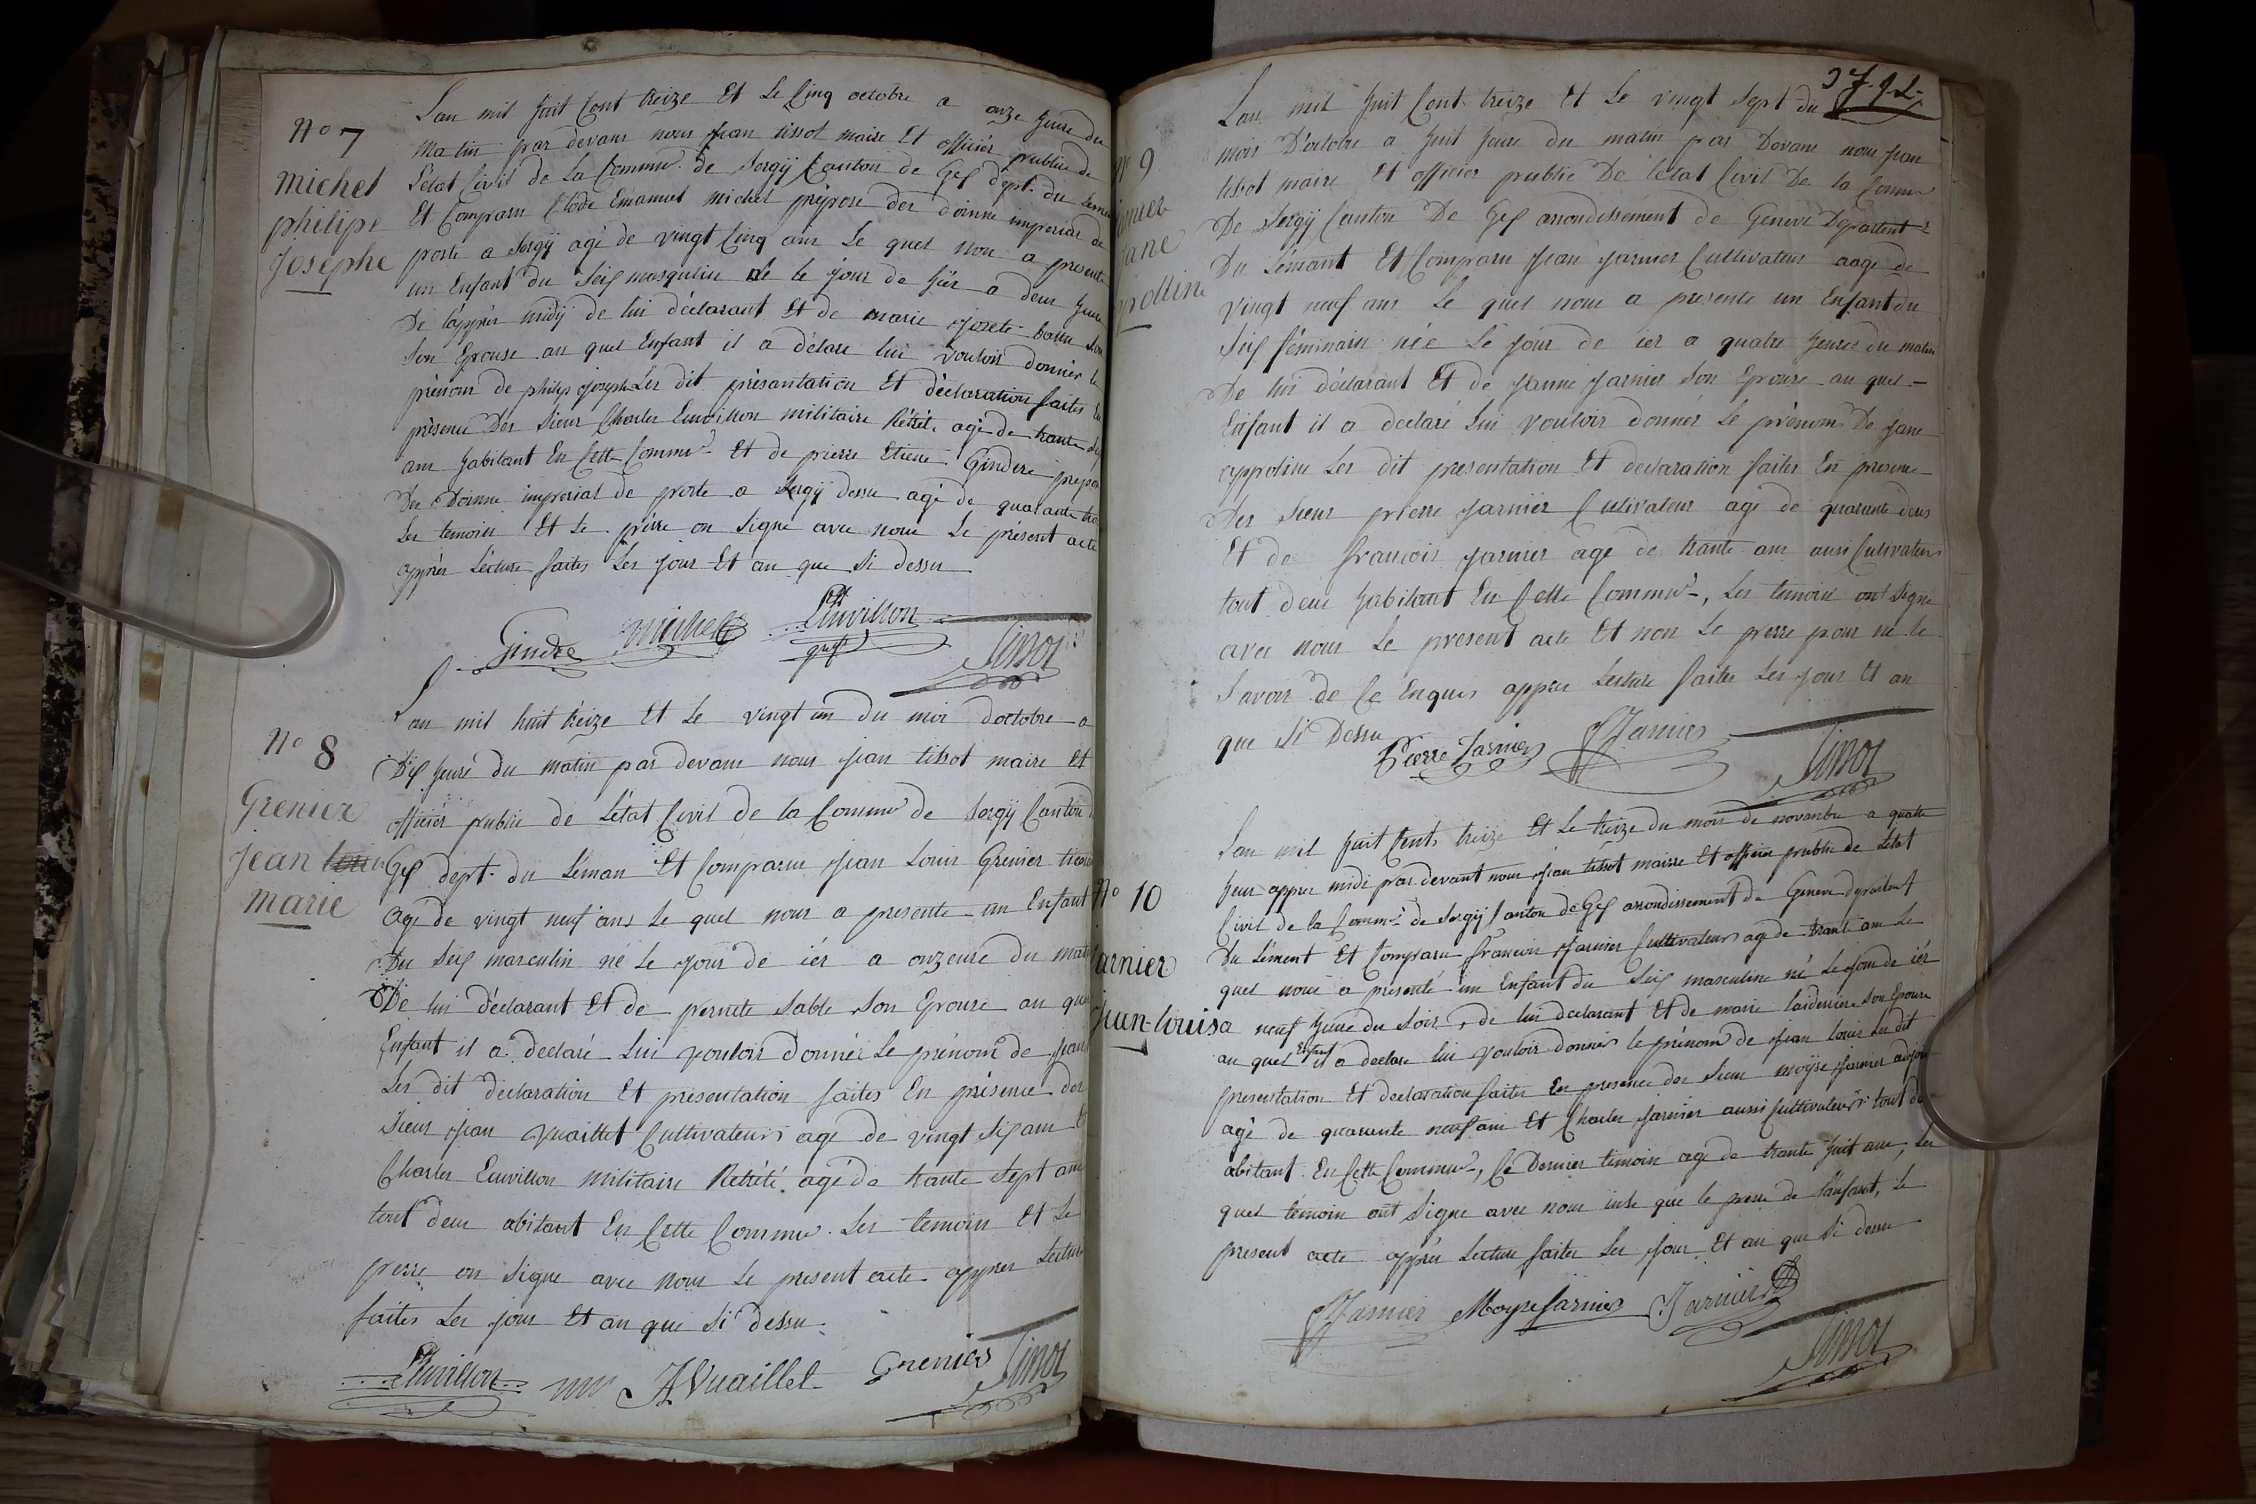 N° 7
Michel
philipe
Josephe
Lan mil huit Cent treize Et Le Cinq octobre a onze heure du
matin par devans nous jean tissot maire Et officier publie de
L'état Civil de La Commune de Sergÿ Canton de Gex dept. du Leman
Et Comparu Clode Emanuel michel préposé des doinne imperial de
poste a Sergÿ agé de vingt Cinq ans Le quel nous a presente
un Enfant du Seix masqulin né le jour de hier a deux heure
De lapprès midÿ de lui déclarant Et de marie josete
Son Epouse au quel Enfant il a délare lui vouloir donner le
prénom de philip joseph Les dit présantation Et déclaration faites En
présence Des Sieur Charles Euvillon militaire Rétrété agé de trante
ans habitant En Cette Commune Et de pierre Etiene Gindre prepose
Du Doinne imperial de poste a Sergÿ dessu agé de quarante
Les temoin Et Le père on Signé avec nous Le présent acte
apprés Lecture faites Les jour Et an que Si dessu
Gindre michel Euvillon Tissot
N° 8
Grenier
jean louis
marie
Lan mil huit treize Et Le vingt un du moi doctobre a
Dix heure du matin par devans nous jean tissot maire Et
officier publie de L'état Civil de la Commune de Sergÿ Canton de
Gex dept. du Léman Et Comparu jean Louis Grenier
agé de vingt neuf ans Le quel nous a presente un Enfant
Du Seix masculin né Le jour de iér a onzeure du matin
De lui déclarant Et de pernete Sable Son Epouse au quel
Enfant il a declaré Lui vouloir donnér Le prénom de jean
Les dit declaration Et présentation faites En présence des
Sieur jean vuaillet Cultivateur agé de vingt Six ans Et
Charles Euvillon militaire Retrété agé de trante Sept ans
tout deux abitant En Cette Commune Les temoin Et Le
perre on Signe avec nous Le present acte apprer Lecture
faites Les jour Et an que Si dessu
Euvillon JAVuaillet Grenier Tissot
N° 9
jane
Lan mil huit Cent treize Et Le vingt Sept du
mois D'octobre a huit heure du matin par Devans nous jean
tissot maire Et officier publie De L'état Civil De la Commune
De Sergÿ Canton De Gex arrondissement de Geneve Departemt
Du Lémant Et Comparu jean jarnier Cultivateur aagé de
vingt neuf ans Le quel nous a presente un Enfant du
Seix féminain née Le jour de iér a quatre heures du matin
De lui déclarant Et de janne jarnier Son Epouse au quel
Enfant il a declaré Lui vouloir donnér Le prénom De jane
appoline Les dit presentation Et declaration faites En presence
Des Sieur pierre jarniér Cultivateur agé de quarante deus
Et de francois jarnier age de trante ans ausi Cultivateur
tout deux habitant En Cette Commune, Les temoin ont Signe
avec nous Le present acte Et non Le perre pour ne le
Savoir de Ce Enquis apprer Lecture faites Les jour Et an
que Si Dessu
Pierre Jarnier FJarnier Tissot
N° 10
jean-louis
Lan mil huit Cents treize Et Le treize du mois de novembre a quatre
heur apprer midi par devant nous jean tissot maire Et officier publie de L'état
Civil de la Comme de Sergÿ Canton de Gex arrondissement de Geneve departement
Du Lément Et Comparu francois jarnier Cultivateur agé de trante ans Le
quel nous a présenté un Enfant du Seix masculine né Le jour de iér
a neuf heure du Soir, de lui declarant Et de marie laderriere Son Epouse
au quel Enfant il a declare lui vouloir donner le prénom de jean louis Les dit
presentation Et declaration faites En presence des Sieur moÿse jarnier adjoin
agé de quarante neuf ans Et Charles jarnier aussi Cultivateur tout deux
abitant En Cette Commune, Ce Dernier temoin agé de trante huit ans, Les
quel témoin ont Signe avec nous insi que le perre de L'enfant, Le
present acte apprés Lecture faites Les jour Et an que Si dessu
FJarnier Moyse Jarnier Jarnier Tissot